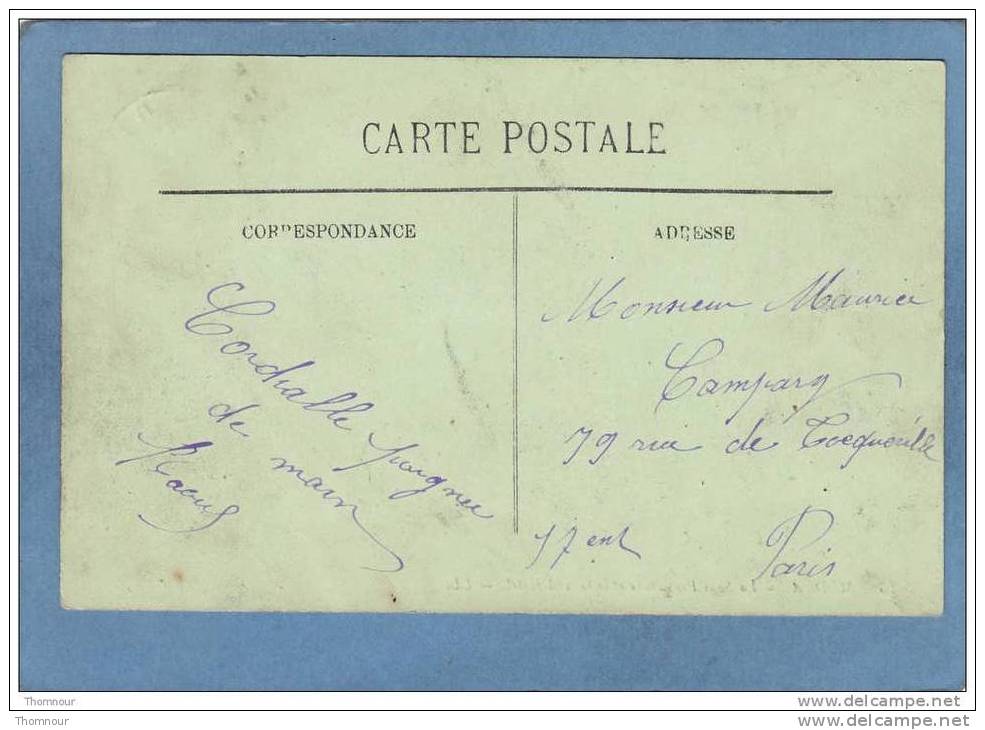 CARTE POSTALE
CORRESPONDANCE
ADRESSE
Cordialle poignee
de main
Raoul
Monsieur Maurice
Campary
79 rue de Tocqueville
17 ent
Paris
Thomnour
www.delcampe.net
Thomnour
www.delcampe.net